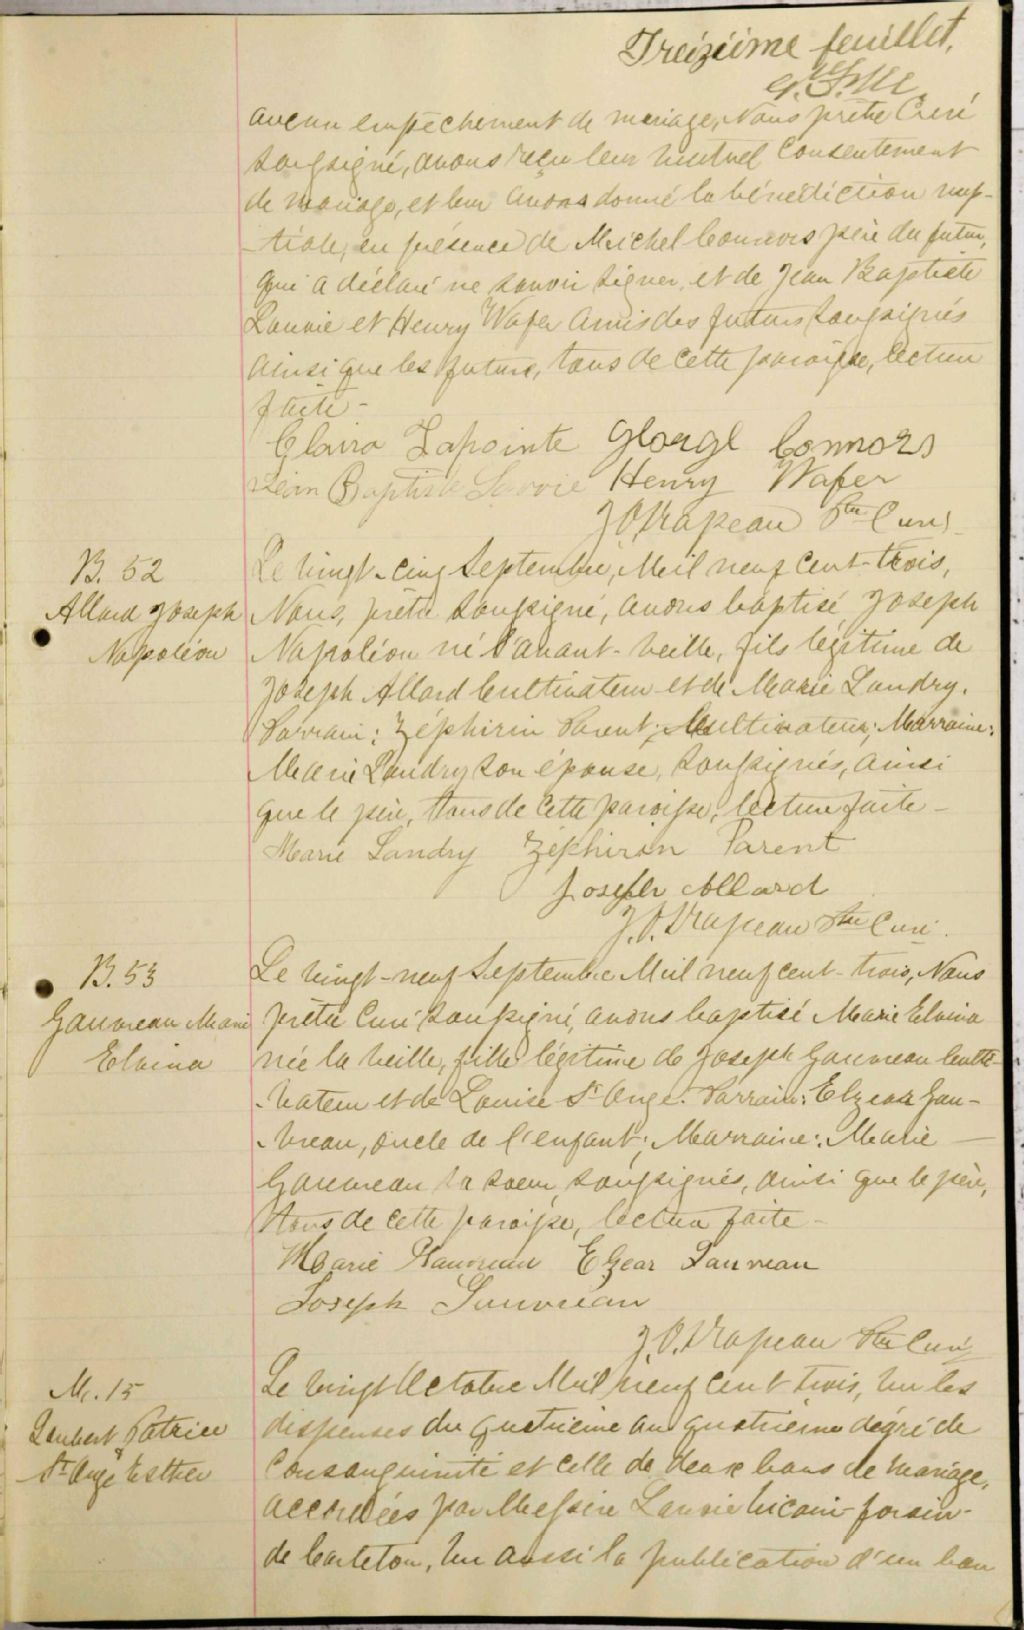 Treizième feuillet,
aucun empêchement de mariage, Nous prêtre Curé
soussigné, avons reçu leur mutuel Consentement
de mariage, et leur avons donné la bénédiction nup-
-tiale, en présence de Michel Connors père du futur,
qui a déclaré ne savoir signer, et de Jean Baptiste
Lavoie et Henry Wafer amis des futurs soussignés
ainsi que les futurs, tous de cette paroisse, lecture
faite -
George Connors
Jean Baptiste Lavoie Henry Wafer
J. O. Drapeau Ptre Curé
B. 52
Allard Joseph
Napoléon
Le vingt-cinq Septembre, Mil neuf cent-trois,
Nous, prêtre soussigné, avons baptisé Joseph
Napoléon né l'avant-veille, fils légitime de
Joseph Allard Cultivateur et de Marie Landry.
Parrain: Zéphirin Parent, Cultivateur; Marraine:
Marie Landry son épouse, soussignés, ainsi
que le père, tous de cette paroisse, lecture faite -
Marie Landry Zéphirin Parent
Joseph Allard
J. O. Drapeau Ptre Curé.
B. 53
Gauvreau Marie
Elvina
Le vingt-neuf Septembre Mil neuf cent-trois, Nous
prêtre Curé soussigné, avons baptisé Marie Elvina
née la veille, fille légitime de Joseph Gauvreau Culti-
-vateur et de Louise St Ange. Parrain: Elzear Gau-
-vreau, oncle de l'enfant; Marraine: Marie
Gauvreau sa soeur, soussignés, ainsi que le père,
tous de cette paroisse, lecture faite -
Marie Gauvreau Elzear Gauvreau
Joseph Gauvreau
J. O. Drapeau Ptre Curé
M. 15
Lambert Patrice
&
St Ange Esther
Le vingt Octobre Mil neuf cent trois, vu les
dispenses du quatrième au quatrième dégré de
Consanguinité et celle de deux bans de mariage,
accordées par Messire Lavoie vicaire-forain-
de Carleton, vu aussi la publication d'un ban